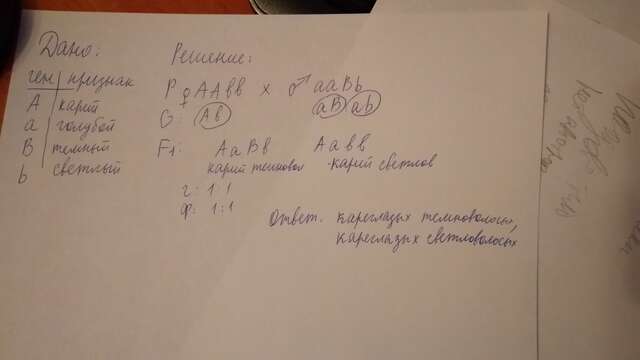 Дано:
ген признак
А карий
а голубой
В темный
b светлый
Решение:
P ♀ААвв х ♂ ааВb
G: Ав аВ аb
F1: АаВв Аавв
карий темновол карий светлов
г: 1:1
ф: 1:1
Ответ. кареглазых темноволосых,
кареглазых светловолосых